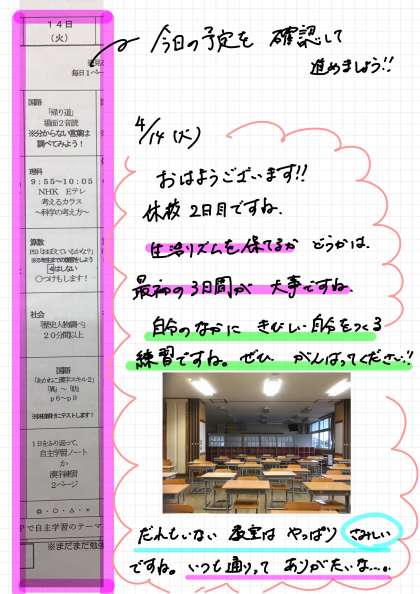 14日
(火)
毎日1ペー
国語
「帰り道」
場面2音読
※分からない言葉は
調べてみよう!
理科
9:55~10:05
NHK Eテレ
考えるカラス
~科学の考え方~
算数
④はしない
○つけもします!
社会
「歴史人物調べ」
20分間以上
国語
「あかねこ漢字スキル2」
p6~p9
1日をふり返って、
自主学習ノート
か
漢字練習
2ページ
◎・○・△・×
Pで自主学習のテーマ
※まだまだ勉強
今日の予定を 確認して
進めましょう!!
4/14(火)
おはようございます!!
休校2日目ですね。
生活リズムを保てるか どうかは、
最初の3日間が 大事ですね。
自分のなかに きびしい自分をつくる
練習ですね。ぜひ がんばってください!!
だれもいない 教室は やっぱり さみしい
ですね。いつも通りって ありがたいな…。